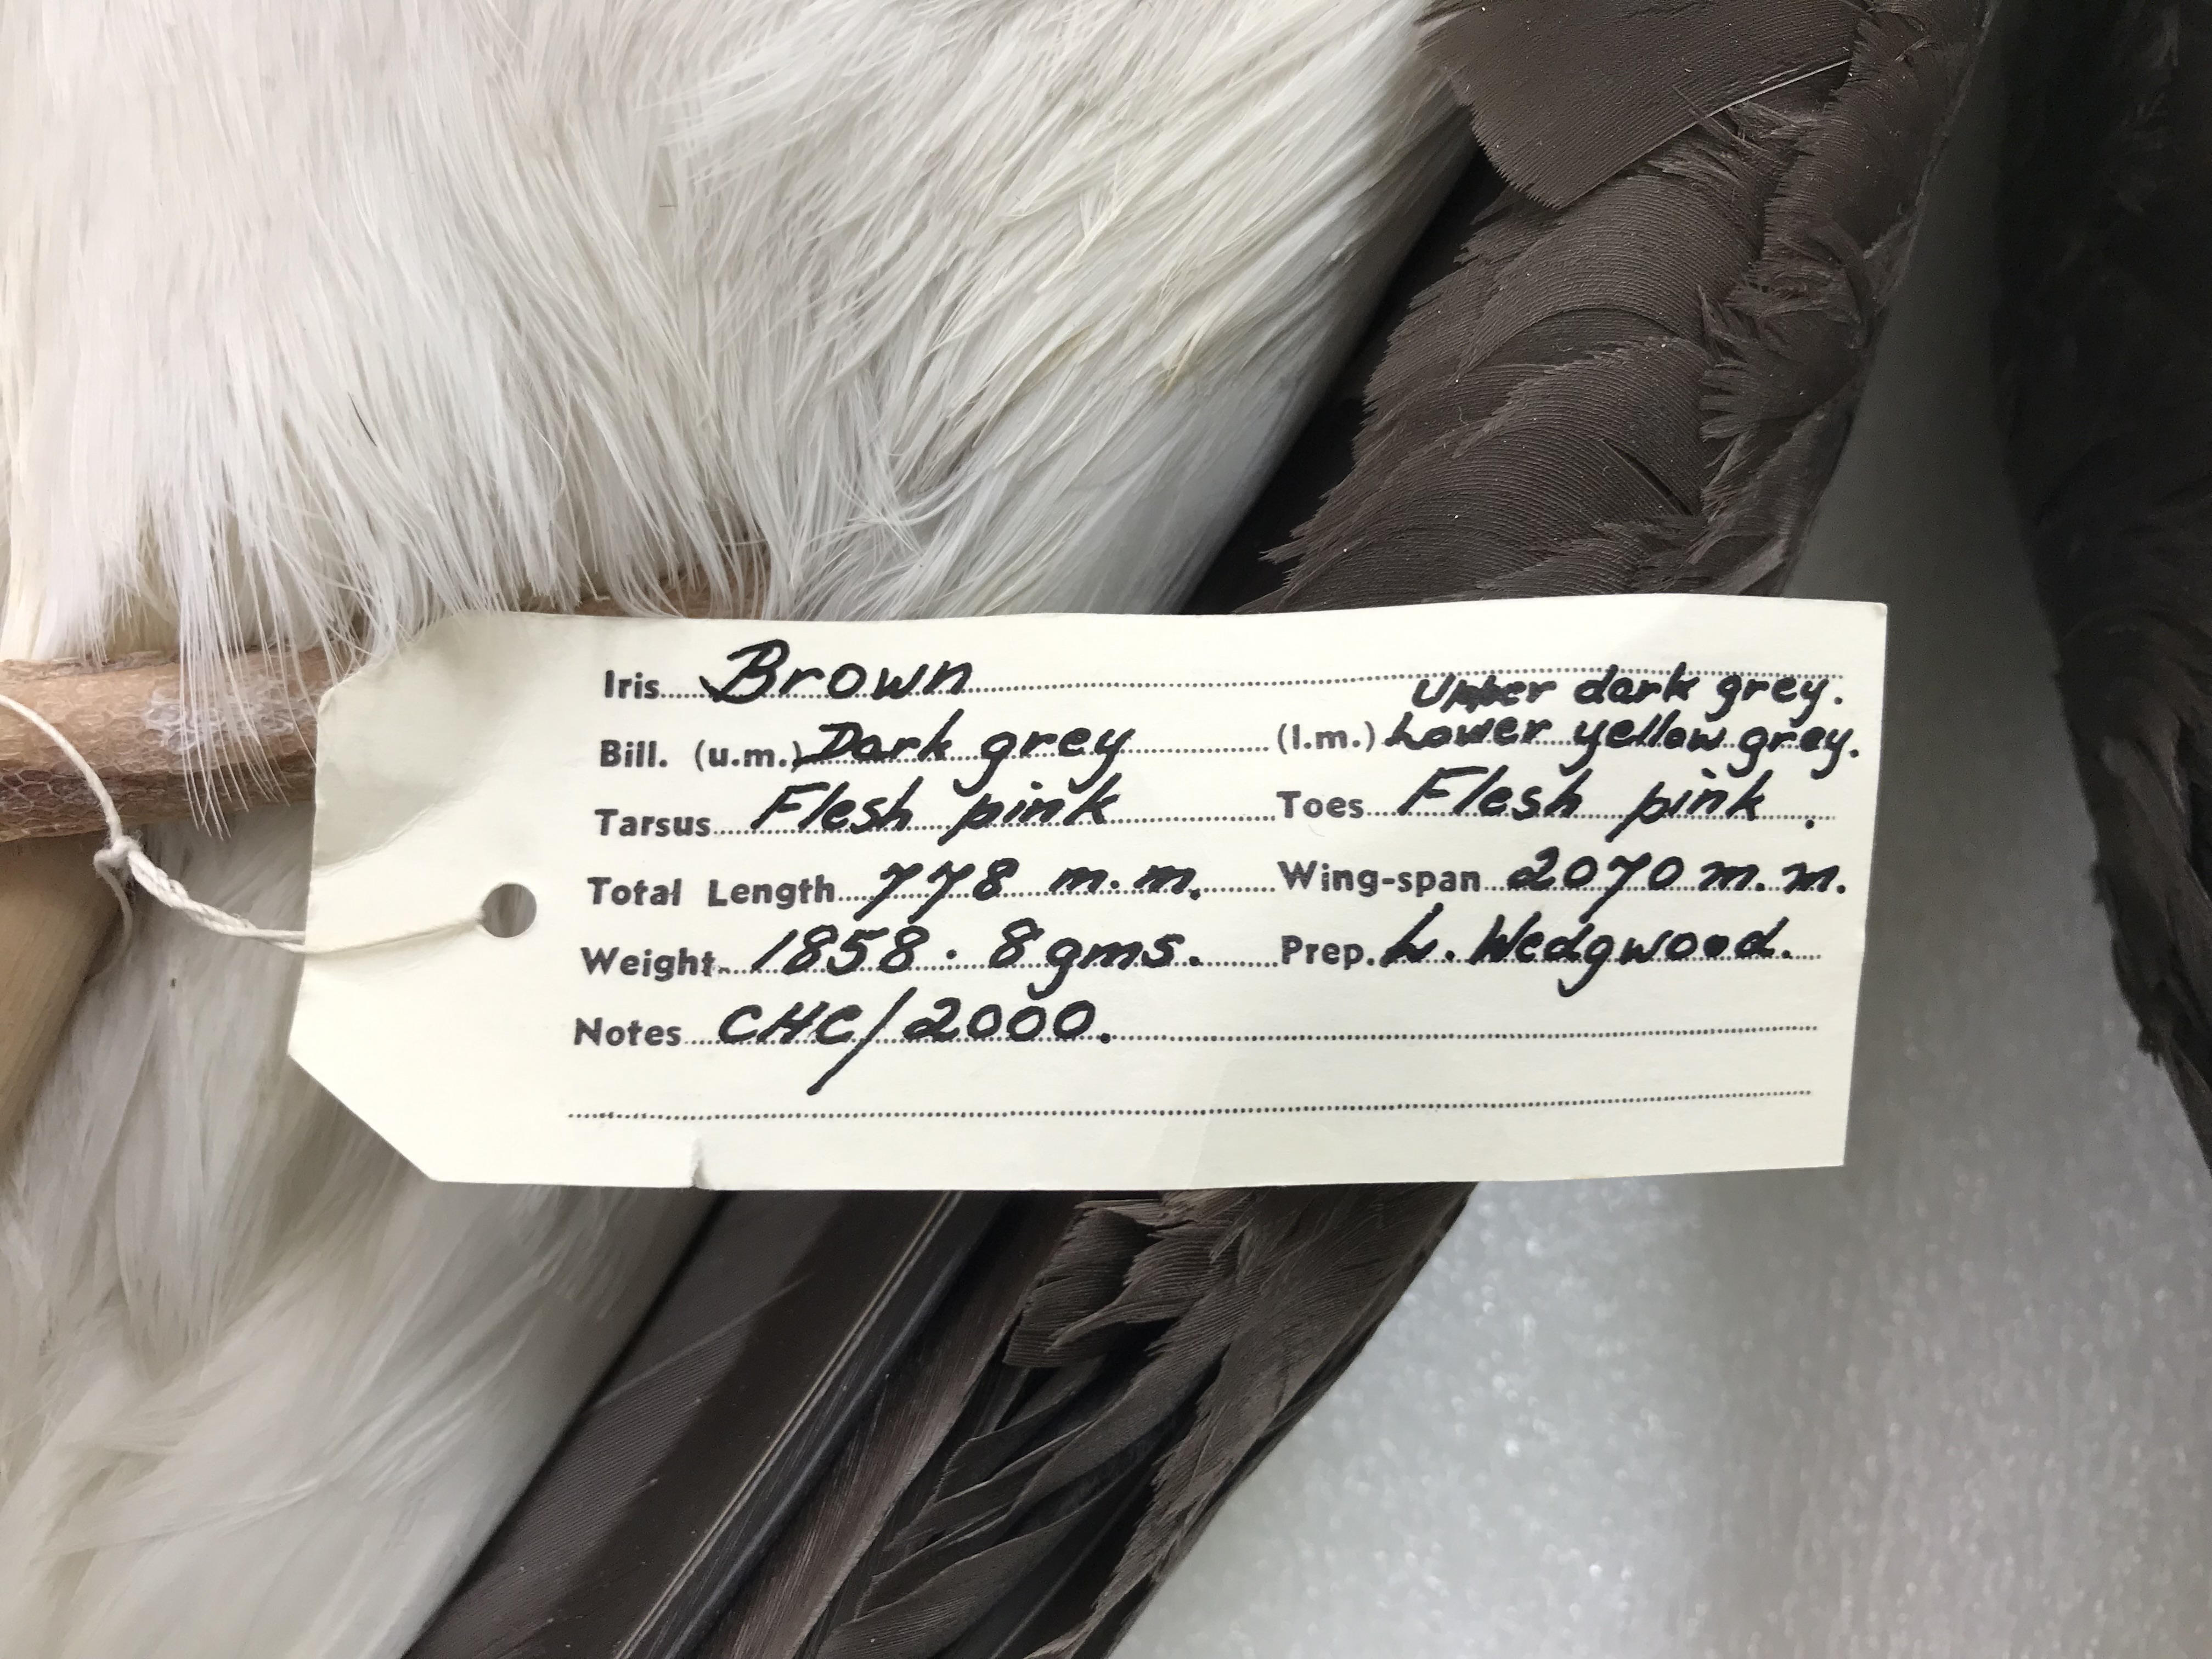 Iris Brown
Upper dark grey.
Bill. (u.m.) Dark grey (l.m.) Lower yellow grey.
Tarsus Flesh pink Toes Flesh pink.
Total Length 778 m.m. Wing-span 2070 m.m.
Weight 1858.8 gms. Prep. L. Wedgwood.
Notes CHC/2000.